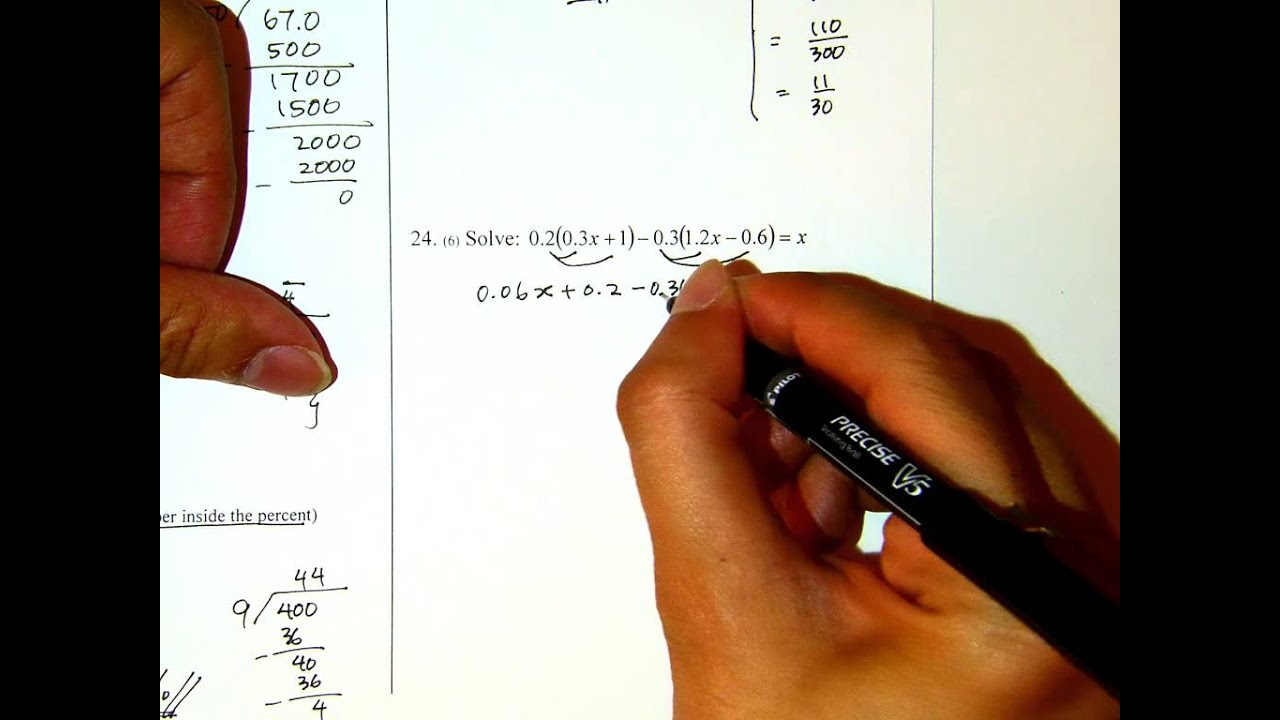 67.0
500
1700
1500
2000
- 2000
0
= 110/300
= 11/30
24. (6) Solve: 0.2(0.3x + 1) – 0.3(1.2x – 0.6) = x
0.06x + 0.2 - 0.36
4
PILOT
PRECISE V5
inside the percent)
44
9 400
36
- 40
36
- 4